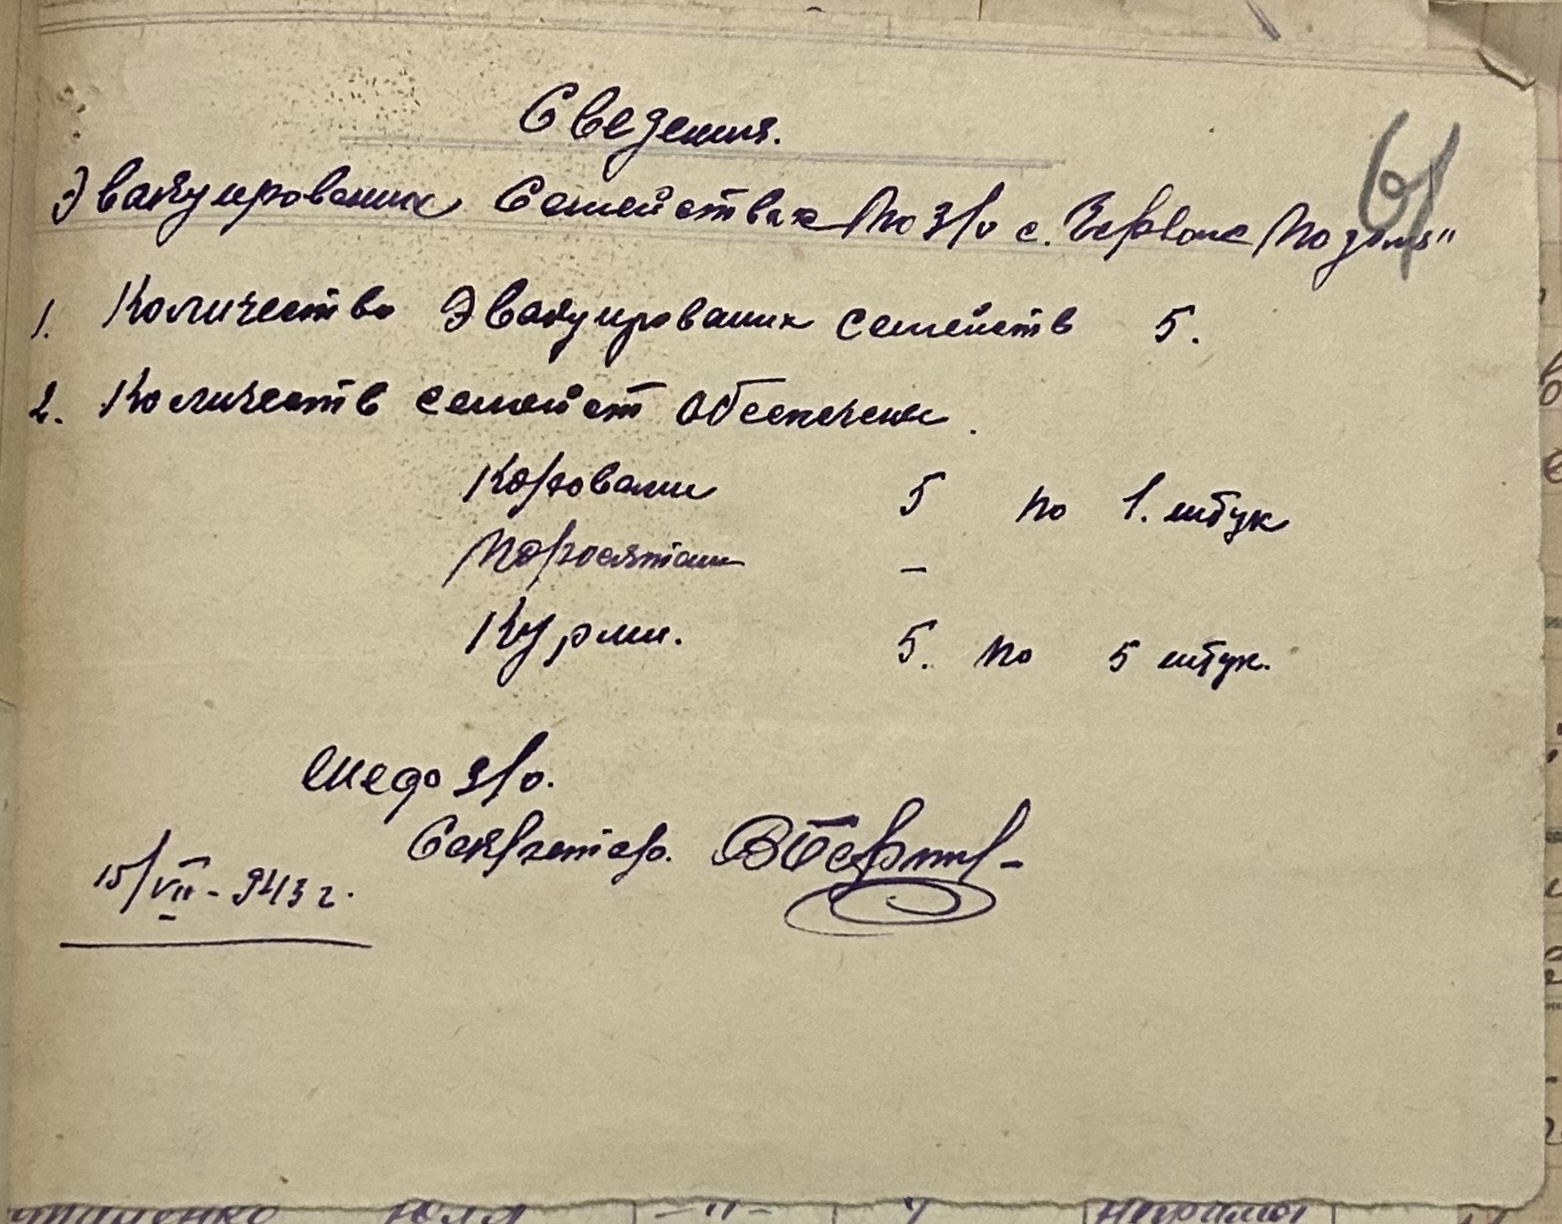 61
Сведения.
Эвакуированих Семействах по З/О с. Червоне
1. Количество Эвакуированих семейств 5.
2. Количеств семейст обеспечени.
Коровами 5 по 1. штук
Поросятами –
Курми. 5. по 5 штук.
З/О.
Секретар.
15/VII - 943 г.
Юля – " – 4